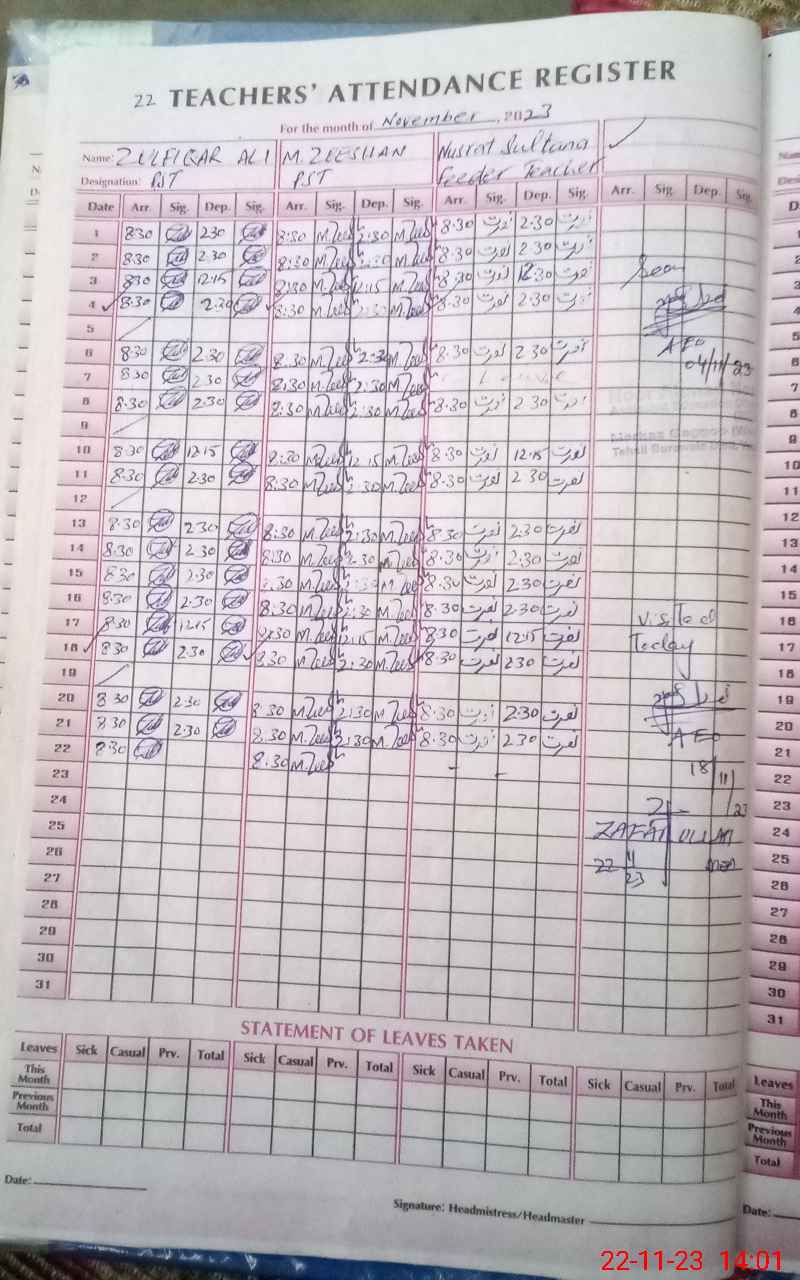 22 TEACHERS' ATTENDANCE REGISTER
For the month of November, 2023
Name: ZULFIQAR ALI M. ZEESHAN Nusrat Sultana
Designation: PST PST Feeder Teacher
Date Arr. Sig. Dep. Sig. Arr. Sig. Dep. Sig. Arr. Sig. Dep. Sig. Arr. Sig. Dep. Sig.
1 8:30 2:30 8:30 M.Zee 2:30 M.Zee 8:30 نصرت 2:30 نصرت
2 8:30 2:30 8:30 M.Zee 2:30 M.Zee 8:30 نصرت 2:30 نصرت
3 8:30 12:15 8:30 M.Zee 12:15 M.Zee 8:30 نصرت 12:30 نصرت Seen
4 8:30 2:30 8:30 M.Zee 2:30 M.Zee 8:30 نصرت 2:30 نصرت
5
6 8:30 2:30 8:30 M.Zee 2:30 M.Zee 8:30 نصرت 2:30 نصرت AEO
7 8:30 2:30 8:30 M.Zee 2:30 M.Zee Leave 04/11/23
8 8:30 2:30 8:30 M.Zee 2:30 M.Zee 8:30 نصرت 2:30 نصرت
9
10 8:30 12:15 8:30 M.Zee 12:15 M.Zee 8:30 نصرت 12:15 نصرت
11 8:30 2:30 8:30 M.Zee 2:30 M.Zee 8:30 نصرت 2:30 نصرت
12
13 8:30 2:30 8:30 M.Zee 2:30 M.Zee 8:30 نصرت 2:30 نصرت
14 8:30 2:30 8:30 M.Zee 2:30 M.Zee 8:30 نصرت 2:30 نصرت
15 8:30 2:30 8:30 M.Zee 2:30 M.Zee 8:30 نصرت 2:30 نصرت
16 8:30 2:30 8:30 M.Zee 2:30 M.Zee 8:30 نصرت 2:30 نصرت Visited
17 8:30 12:15 8:30 M.Zee 12:15 M.Zee 8:30 نصرت 12:15 نصرت Today
18 8:30 2:30 8:30 M.Zee 2:30 M.Zee 8:30 نصرت 2:30 نصرت
19
20 8:30 2:30 8:30 M.Zee 2:30 M.Zee 8:30 نصرت 2:30 نصرت
21 8:30 2:30 8:30 M.Zee 2:30 M.Zee 8:30 نصرت 2:30 نصرت AEO
22 8:30 8:30 M.Zee - - 18/11/23
23
24 ZAFAR ULLAH
25 22 11 23
26
27
28
29
30
31
STATEMENT OF LEAVES TAKEN
Leaves Sick Casual Prv. Total Sick Casual Prv. Total Sick Casual Prv. Total Sick Casual Prv. Total
This Month
Previous Month
Total
Date:
Signature: Headmistress/Headmaster
22-11-23 14:01